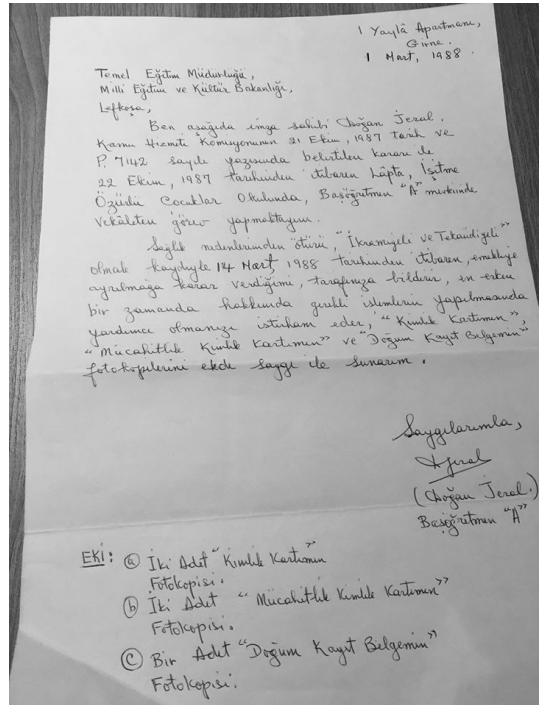 1 Yaylâ Apartmanı,
Girne.
1 Mart, 1988.
Temel Eğitim Müdürlüğü,
Milli Eğitim ve Kültür Bakanlığı,
Lefkoşa,
Ben aşağıda imza sahibi Doğan Jeral.
Kamu Hizmeti Komisyonunun 21 Ekim, 1987 tarih ve
P. 7142 sayılı yazısında belirtilen kararı ile
22 Ekim, 1987 tarihinden itibaren Lâpta, İşitme
Özürlü Çocuklar Okulunda, Başöğretmen "A" mevkiinde
Vekâleten görev yapmaktayım.
Sağlık nedenlerimden ötürü, "İkramiyeli ve Tekaüdiyeli"
olmak kaydıyle 14 Mart, 1988 tarihinden itibaren, emekliye
ayrılmağa karar verdiğimi, tarafınıza bildirir, en erken
bir zamanda hakkımda gerekli işlemlerin yapılmasında
yardımcı olmanızı istirham eder, "Kimlik Kartımın",
"Mücahitlik Kimlik Kartımın" ve "Doğum Kayıt Belgemin"
fotokopilerini ekde saygı ile sunarım.
Saygılarımla,
(Doğan Jeral.)
Başöğretmen "A"
EKİ: (a) İki Adet "Kimlik Kartımın
Fotokopisi.
(b) İki Adet "Mücahitlik Kimlik Kartımın"
Fotokopisi.
(c) Bir Adet "Doğum Kayıt Belgemin"
Fotokopisi.